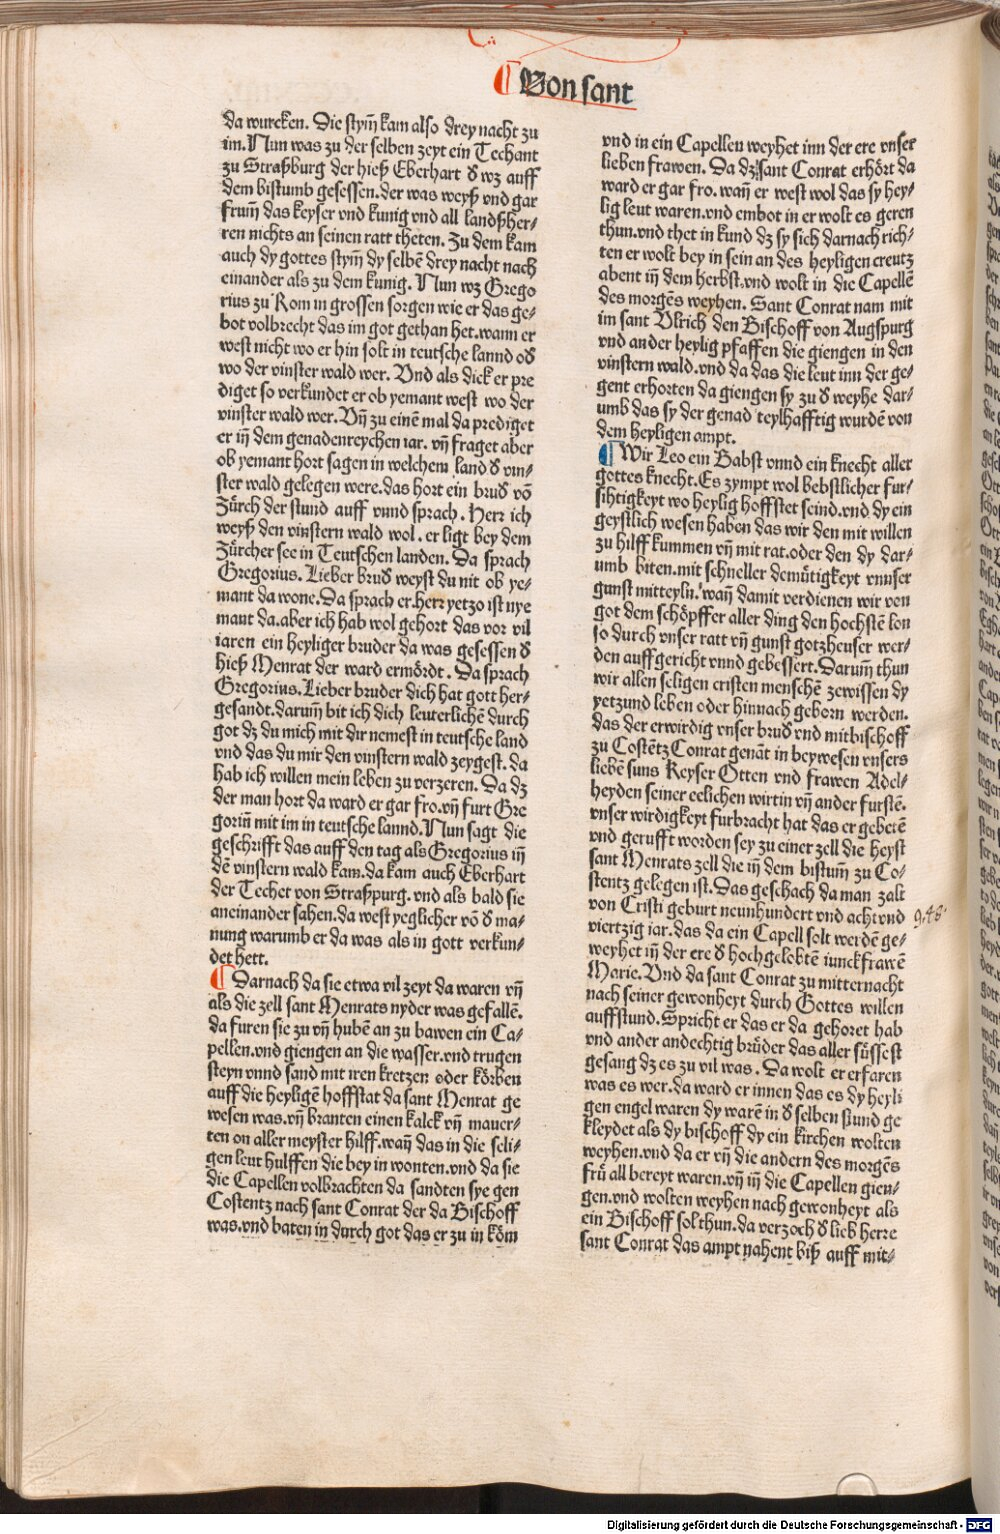 ¶ Von sant
da wurcken. Die stym̃ kam also drey nacht zu
im. Nun was zu der selben zeyt ein Techant
zu Straßburg der hieß Eberhart ď wz auff
dem bistumb gesessen. der was weyß vnd gar
frum̃ das keyser vnd kunig vnd all landßher⸗
ren nichts an seinen ratt theten. Zu dem kam
auch dy gottes stym̃ dy selbẽ drey nacht nach
einander als zu dem kunig. Nun wz Grego
rius zu Rom in grossen sorgen wie er das ge⸗
bot volbrecht das im got gethan het. wann er
west nicht wo er hin solt in teutsche lannd oď
wo der vinster wald wer. Vnd als dick er pre
diget so verkundet er ob yemant west wo der
vinster wald wer. Vñ zu einẽ mal da prediget
er iñ dem genadenreychen iar. vñ fraget aber
ob yemant hort sagen in welchem land ď vin⸗
ster wald gelegen were. das hort ein bruď võ
Zürch der stund auff vnnd sprach. Herr ich
weyß den vinstern wald wol. er ligt bey dem
Zürcher see in Teutschen landen. Da sprach
Gregorius. Lieber bruď weyst du nit ob ye⸗
mant da wone. Da sprach er. herr yetzo ist nye
mant da. aber ich hab wol gehort das vor vil
iaren ein heyliger bruder da was gesessen ď
hieß Menrat der ward ermördt. Da sprach
Gregorius. Lieber bruder dich hat gott her⸗
gesandt. darum̃ bit ich dich leuterlichẽ durch
got dz du mich mit dir nemest in teutsche land
vnd das du mir den vinstern wald zeygest. da
hab ich willen mein leben zu verzeren. Da dz
der man hort da ward er gar fro. vñ furt Gre
goriũ mit im in teutsche lannd. Nun sagt die
geschrifft das auff den tag als Gregorius iñ
dẽ vinstern wald kam. da kam auch Eberhart
der Techet von Straßpurg. vnd als bald sie
aneinander sahen. da west yeglicher võ ď ma⸗
nung warumb er da was als in gott verkun⸗
det hett.
¶ Darnach da sie etwa vil zeyt da waren vñ
als die zell sant Menrats nyder was gefallẽ.
da furen sie zu vñ hubẽ an zu bawen ein Ca⸗
pellen. vnd giengen an die wasser. vnd trugen
steyn vnnd sand mit iren kretzen oder körben
auff die heyligẽ hoffstat da sant Menrat ge
wesen was. vñ branten einen kalck vñ mauer⸗
ten on aller meyster hilff. wañ das in die seli⸗
gen leut hulffen die bey in wonten. vnd da sie
die Capellen volbrachten da sandten sye gen
Costentz nach sant Conrat der da Bischoff
was. vnd baten in durch got das er zu in köm
vnd in ein Capellen weyhet inn der ere vnser
lieben frawen. Da dz sant Conrat erhört da
ward er gar fro. wañ er west wol das sy hey⸗
lig leut waren. vnd embot in er wolt es geren
thun. vnd thet in kund dz sy sich darnach rich⸗
ten er wolt bey in sein an des heyligen creutz
abent iñ dem herbst. vnd wolt in die Capellẽ
des morgẽs weyhen. Sant Conrat nam mit
im sant Vlrich den Bischoff von Augspurg
vnd ander heylig pfaffen die giengen in den
vinstern wald. vnd da das die leut inn der ge⸗
gent erhorten da giengen sy zu ď weyhe dar⸗
umb das sy der genad teylhafftig wurdẽ von
dem heyligen ampt.
¶ Wir Leo ein Babst vnnd ein knecht aller
gottes knecht. Es zympt wol bebstlicher fur⸗
sihtigkeyt wo heylig hoffstet seind. vnd dy ein
geystlich wesen haben das wir den mit willen
zu hilff kummen vñ mit rat. oder den dy dar⸗
umb biten. mit schneller demütigkeyt vnnser
gunst mitteyln. wañ damit verdienen wir von
got dem schöpffer aller ding den hochstẽ lon
so durch vnser ratt vñ gunst gotzheuser wer⸗
den auffgericht vnnd gebessert. Darum̃ thun
wir allen seligen cristen menschẽ zewissen dy
yetzund leben oder hinnach geborn werden.
das der erwirdig vnser bruď vnd mitbischoff
zu Costẽtz Conrat genãt in beywesen vnsers
liebẽ suns Keyser Otten vnd frawen Adel⸗
heyden seiner eelichen wirtin vñ ander furstẽ.
vnser wirdigkeyt furbracht hat das er gebetẽ
vnd gerufft worden sey zu einer zell die heyst
sant Menrats zell die iñ dem bistum̃ zu Co⸗
stentz gelegen ist. Das geschach da man zalt
von Cristi geburt neunhundert vnd acht vnd
948
viertzig iar. das da ein Capell solt werdẽ ge⸗
weyhet iñ der ere ď hochgelobtẽ iunckfrawẽ
Marie. Vnd da sant Conrat zu mitternacht
nach seiner gewonheyt durch Gottes willen
auffstund. Spricht er das er da gehoret hab
vnd ander andechtig brüder das aller süssest
gesang dz es zu vil was. Da wolt er erfaren
was es wer. da ward er innen das es dy heyli
gen engel waren dy warẽ in ď selben stund ge
kleydet als dy bischoff dy ein kirchen wolten
weyhen. vnd da er vñ die andern des morgẽs
frü all bereyt waren. vñ iñ die Capellen gien⸗
gen. vnd wolten weyhen nach gewonheyt als
ein Bischoff sol thun. da verzoch ď lieb herre
sant Conrat das ampt nahent biß auff mit⸗
Digitalisierung gefördert durch die Deutsche Forschungsgemeinschaft - DFG